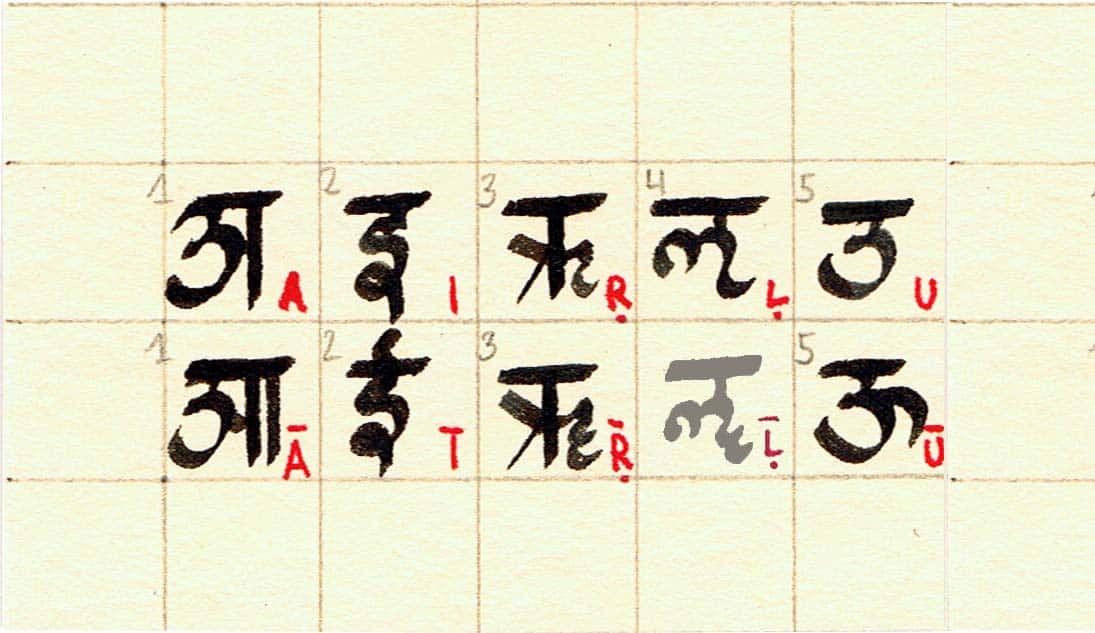 1 अ A 2 इ I 3 ऋ Ṛ 4 ऌ Ḷ 5 उ U
1 आ Ā 2 ई Ī 3 ॠ Ṝ ॡ Ḹ 5 ऊ Ū